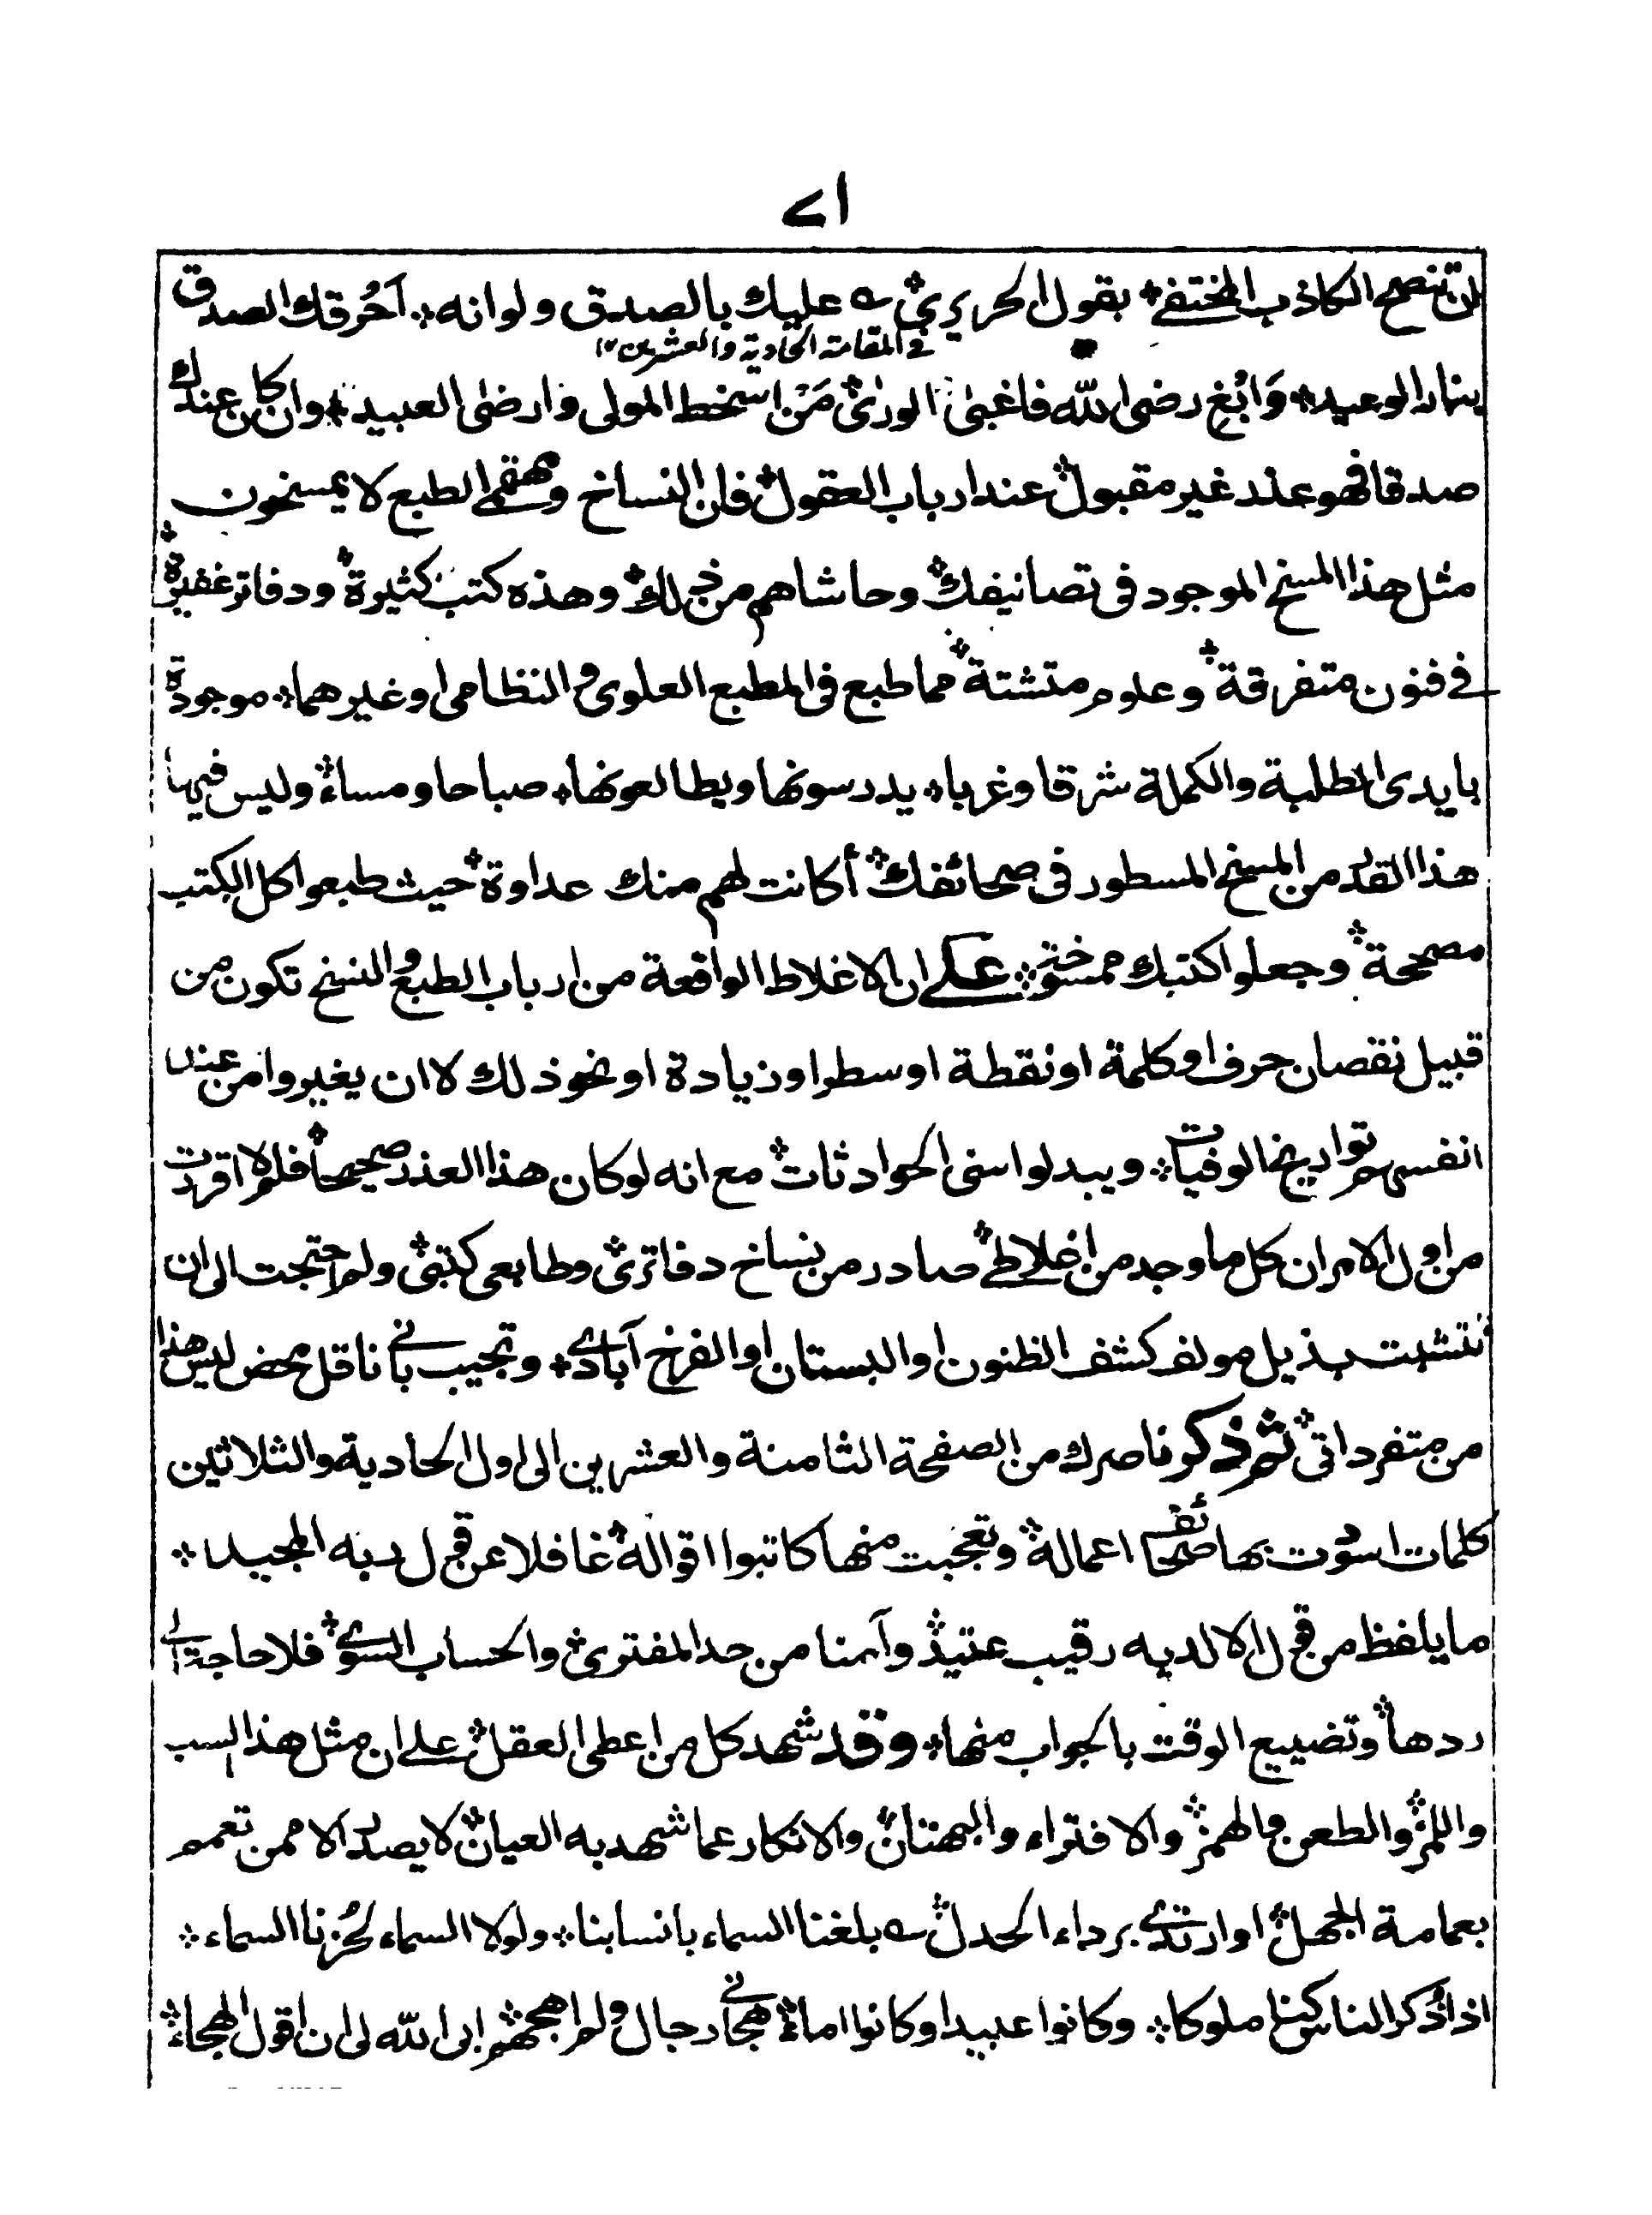 ٧١
ان تنصح الكاذب المختفي؞ بقول الحريري؞ ؎ عليك بالصدق ولو انه؞ اَحْرَقك الصدق
في المقامة الحادية والعشرين ١٢
بنار الوعيد؞ وَابْغِ رضى الله فاغبى الورى؞ مَنْ اسخط المولى وارضى العبيد؞ وان كان عندك
صدقا فهو عذر غير مقبول؞ عند ارباب العقول؞ فان النساخ ومهتمى الطبع لا يمسخون
مثل هذا المسخ الموجود فى تصانيفك؞ وحاشاهم من ذلك؞ وهذه كتب كثيرة؞ ودفاتر غفيرة؞
في فنون متفرقة؞ وعلوم متشتتة؞ مما طبع فى المطبع العلوى والنظامى او غيرهما؞ موجودة
بايدى الطلبة والكملة شرقا وغربا؞ يدرسونها ويطالعونها؞ صباحا ومساء؞ وليس فيها
هذا القدر من المسخ المسطور فى صحائفك؞ أكانت لهم منك عداوة؞ حيث طبعوا كل الكتب
مصححة؞ وجعلوا كتبك ممسوخة؞ على ان الاغلاط الواقعة من ارباب الطبع والنسخ تكون من
قبيل نقصان حرف او كلمة او نقطة او سطر او زيادة او نحو ذلك لا ان يغيروا من عند
انفسهم تواريخ الوفيات؞ ويبدلوا سنى الحوادثات؞ مع انه لو كان هذا العذر صحيحا فلم لا اقررت
من اول الامر ان كل ما وجد من اغلاطي؞ صادر من نساخ دفاترى؞ وطابعى كتبى؞ ولم احتجت الى ان
تتشبث بذيل مولف كشف الظنون او البستان او الفرخ آبادي؞ وتجيب بانى ناقل محض ليس هذا
من متفرداتى؞ ثم ذكر ناصرك من الصفحة الثامنة والعشرين الى اول الحادية والثلاثين
كلمات اسودت بها صحائف اعماله؞ وتعجبت منها كاتبوا اقواله؞ غافلا عن قول ربه المجيد؞
ما يلفظ من قول الا لديه رقيب عتيد؞ وآمنا من حد المفترى؞ والحساب السوي؞ فلا حاجة الى
ردها؞ وتضييع الوقت بالجواب منها؞ وقد شهد كل من اعطى العقل؞ على ان مثل هذا السب
واللمز؞ والطعن والهمز؞ والافتراء والبهتان؞ والانكار عما شهد به العيان؞ لا يصدر الا ممن تعمم
بعمامة الجهل؞ او ارتدى برداء الحدل؞ ؎ بلغنا السماء بانسابنا؞ ولولا السماء لجُزنا السماء؞
اذا ذُكر الناس كنا ملوكا؞ وكانوا عبيدا وكانوا اماء؞ هجانى رجال ولم اهجهم؞ ابى الله لى ان اقول الهجاء؞